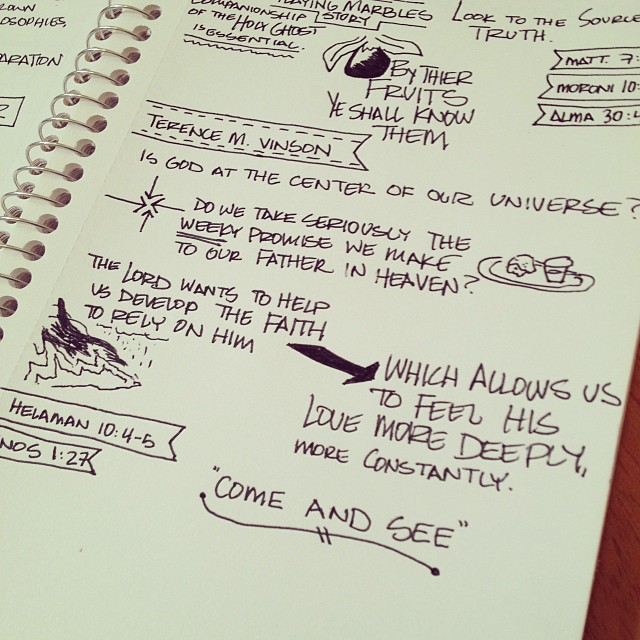 PLAYING MARBLES
STORY
COMPANIONSHIP
OF THE HOLY GHOST
IS ESSENTIAL.
LOOK TO THE SOURCE
TRUTH.
MATT. 7:
MORONI 10:
ALMA 30:4
BY THIER
FRUITS
YE SHALL KNOW
THEM
TERENCE M. VINSON
IS GOD AT THE CENTER OF OUR UNIVERSE?
DO WE TAKE SERIOUSLY THE
WEEKLY PROMISE WE MAKE
TO OUR FATHER IN HEAVEN?
THE LORD WANTS TO HELP
US DEVELOP THE FAITH
TO RELY ON HIM
WHICH ALLOWS US
TO FEEL HIS
LOVE MORE DEEPLY,
MORE CONSTANTLY.
HELAMAN 10:4-5
NOS 1:27
"COME AND SEE"